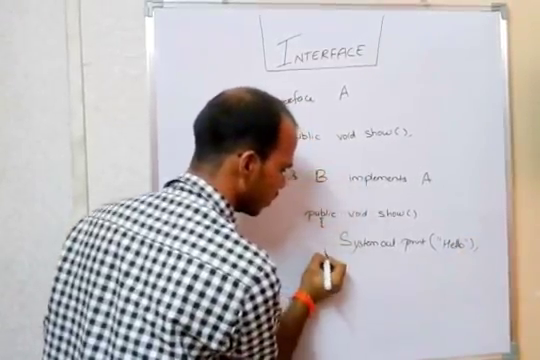 INTERFACE
A
void show();
B implements A
public void show()
{
System.out.print("Hello");